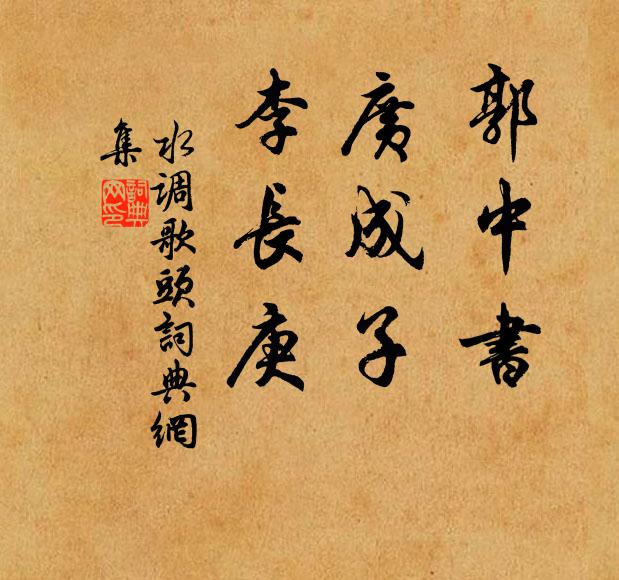 郭中書
廣成子
李長庚
水调歌頭詞典網
集
詞典
网印